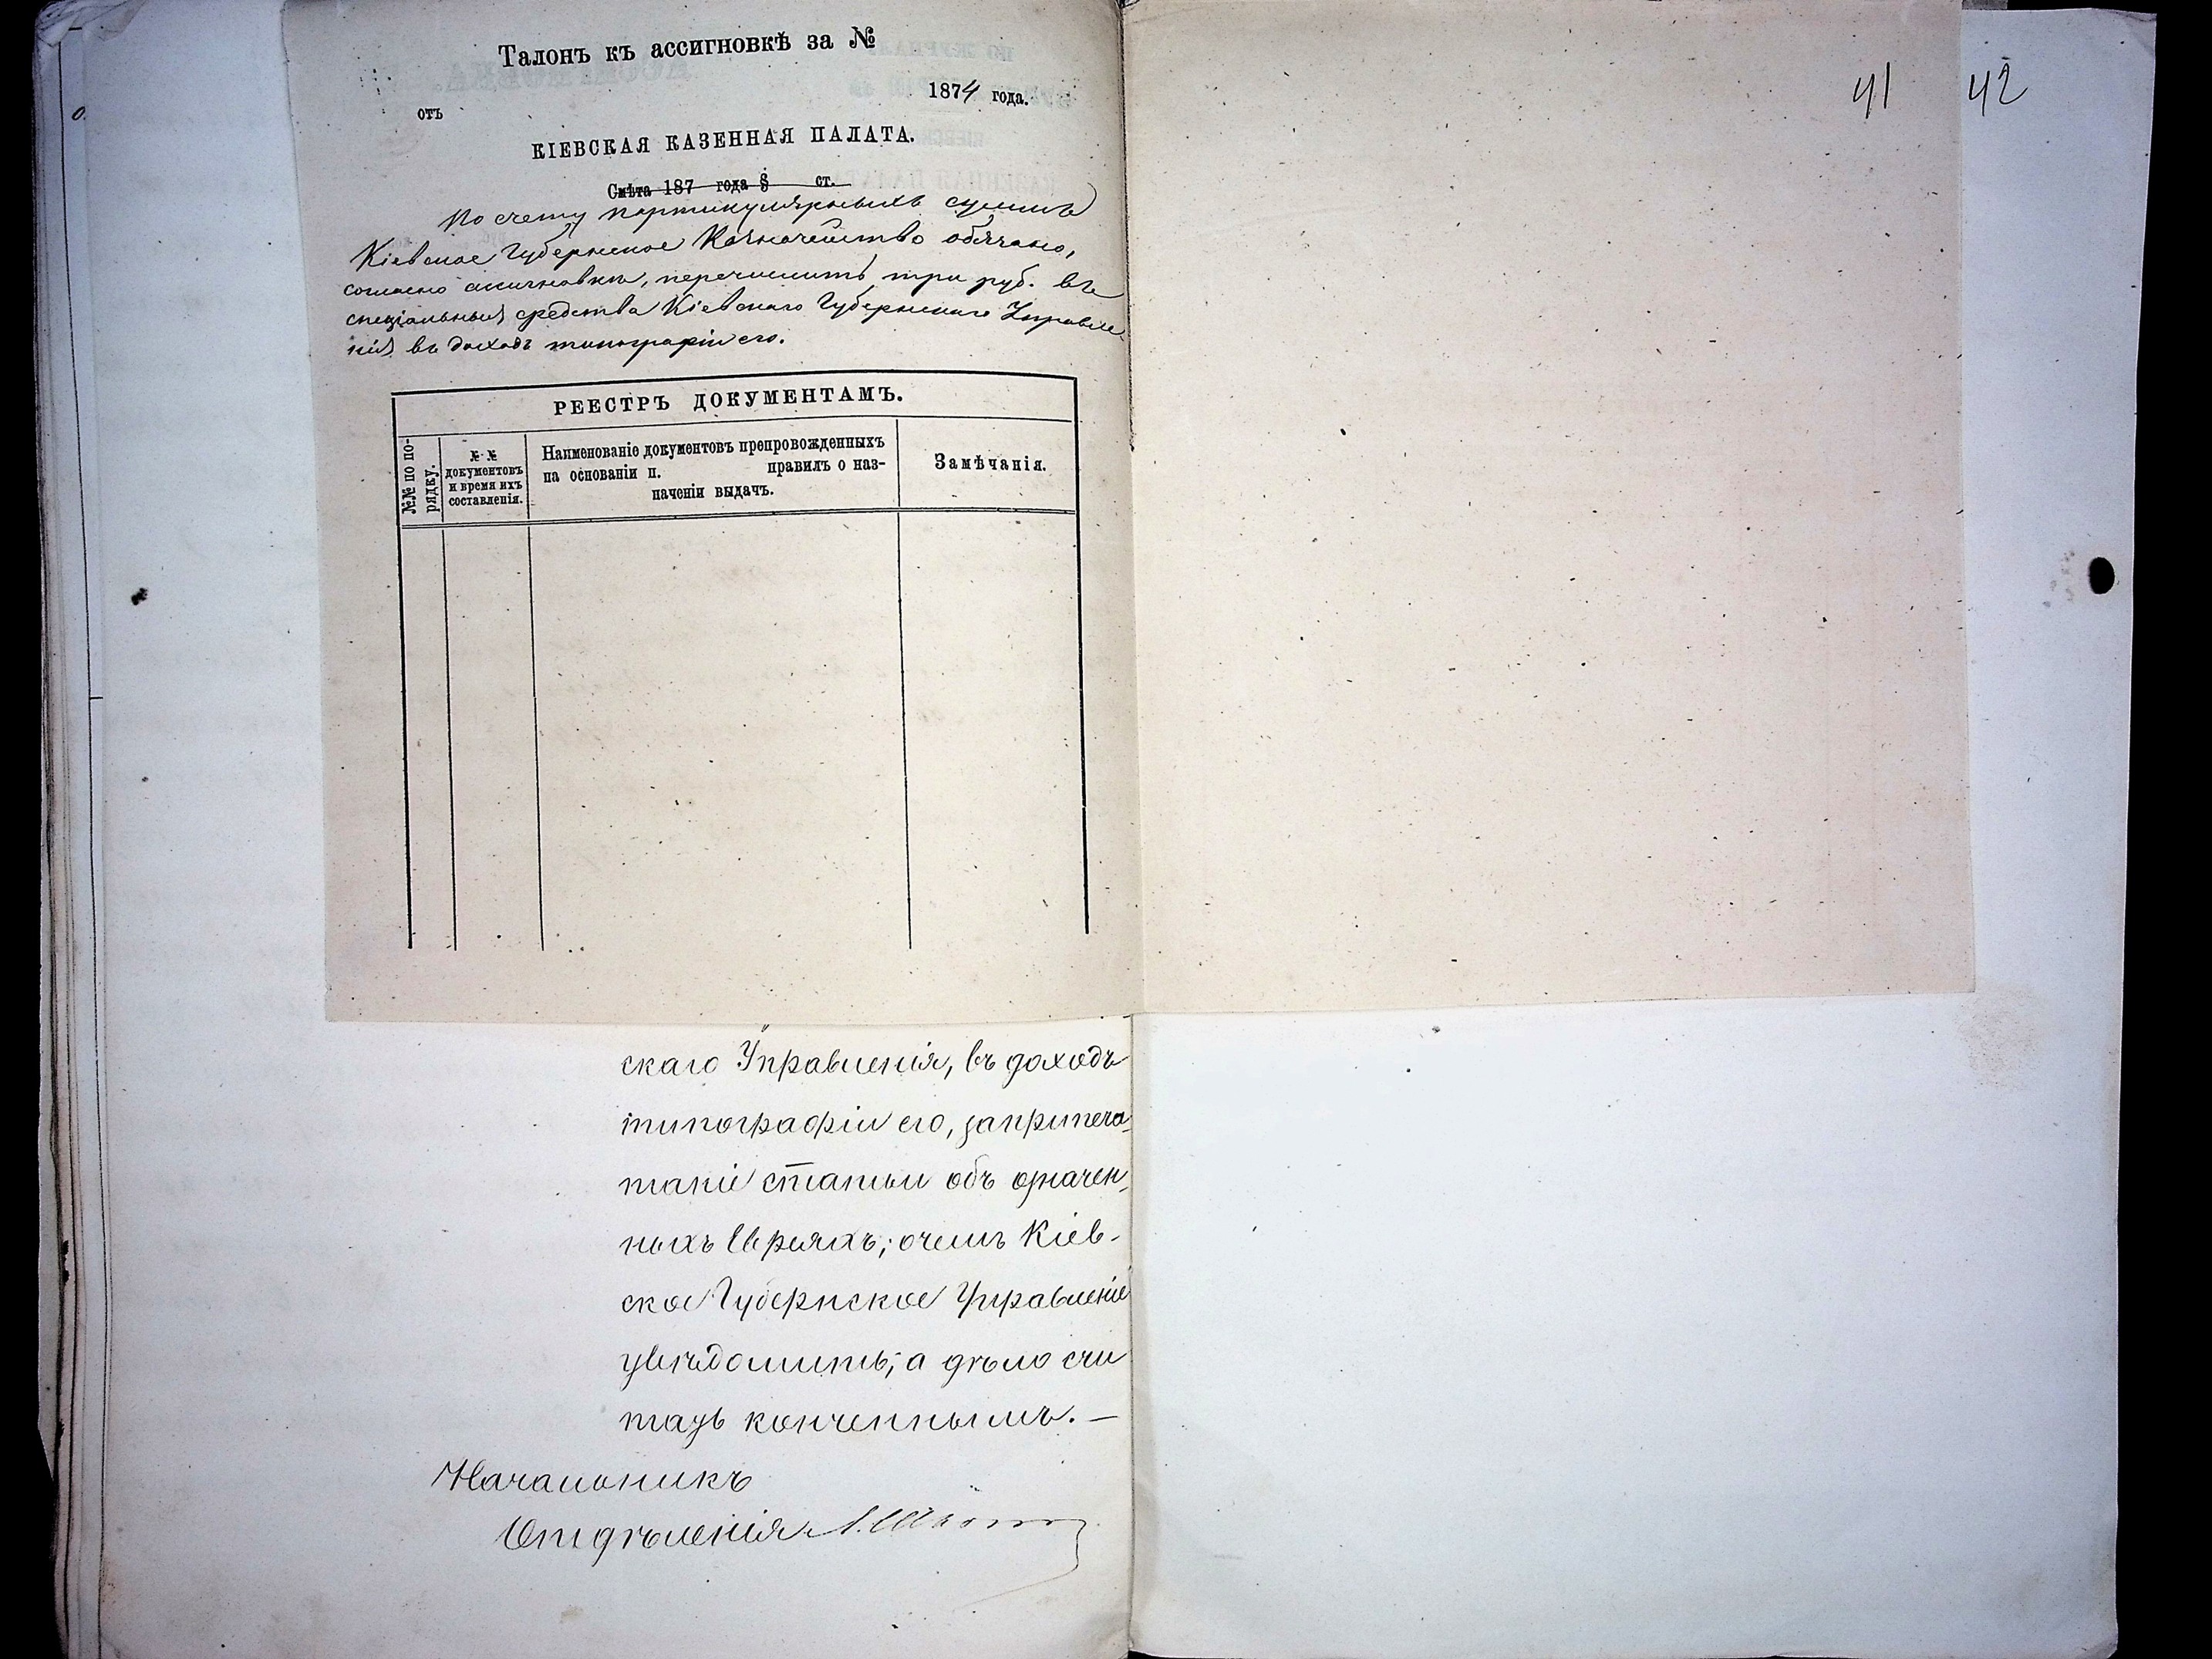 Талонъ къ ассигновкѣ за №
отъ 1874 года.
КІЕВСКАЯ КАЗЕННАЯ ПАЛАТА.
Смѣта 187 года § ст.
По счету партикулярныхъ суммъ
Кіевское Губернское Казначейство обязано,
согласно ассигновки, перечислить три руб. въ
спеціальныя средства Кіевскаго Губернскаго Управле
нія въ доходъ типографіи его.
РЕЕСТРЪ ДОКУМЕНТАМЪ.
№№ по по-
рядку.
№ №
документовъ
и время ихъ
составленія.
Наименованіе документовъ препровожденныхъ
на основаніи п. правилъ о наз-
наченіи выдачъ.
Замѣчанія.
41 42
скаго Управленія, въ доходъ
типографіи его, за припеча-
таніе статьи объ означен-
ныхъ Евреяхъ; о чемъ Кіев-
ское Губернское Управленіе
увѣдомить; а дѣло счи
тать конченнымъ. —
Начальникъ
Отдѣленія